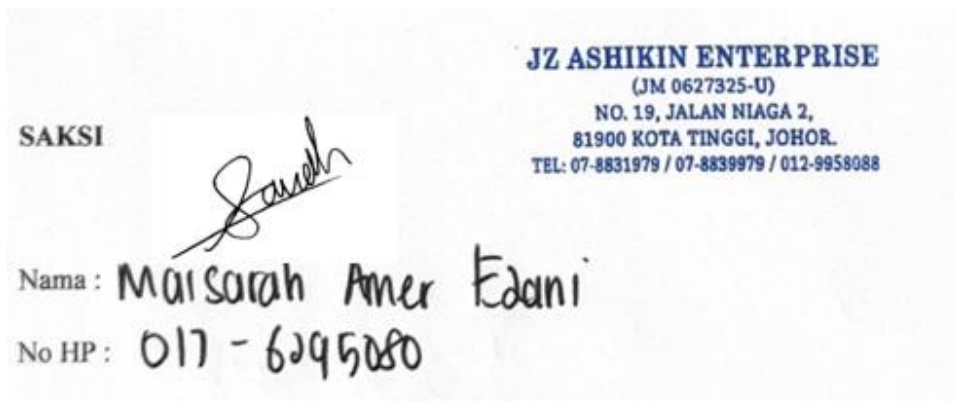 JZ ASHIKIN ENTERPRISE
(JM 0627325-U)
NO. 19, JALAN NIAGA 2,
81900 KOTA TINGGI, JOHOR.
TEL: 07-8831979 / 07-8839979 / 012-9958088
SAKSI
Nama : Maisarah Amer Edani
No HP : 017 - 6295080